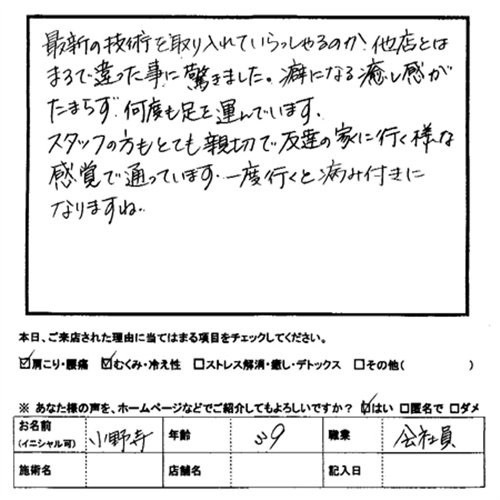 最新の技術を取り入れていらっしゃるのか、他店とは
まるで違った事に驚きました。癖になる癒し感が
たまらず、何度も足を運んでいます。
スタッフの方もとても親切で友達の家に行く様な
感覚で通っています。一度行くと病み付きに
なりますね。
本日、ご来店された理由に当てはまる項目をチェックしてください。
☑肩こり・腰痛 ☑むくみ・冷え性 □ストレス解消・癒し・デトックス □その他( )
※ あなた様の声を、ホームページなどでご紹介してもよろしいですか? ☑はい □匿名で □ダメ
お名前 (イニシャル可) 小野寺 年齢 39 職業 会社員
施術名 店舗名 記入日